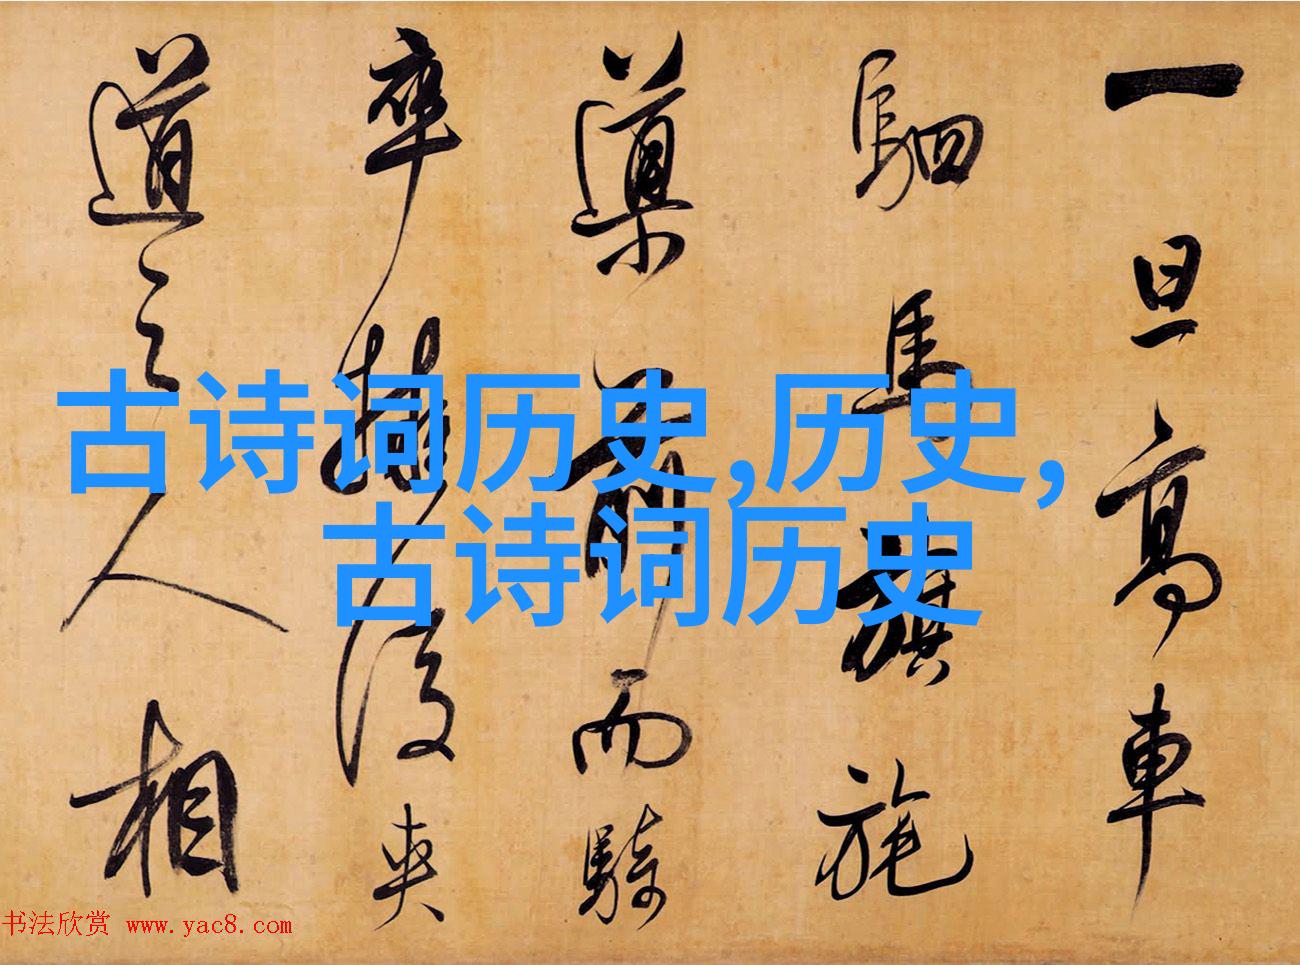 一旦高車
駟馬旗旄
導前而騎
卒擁後夾
道之人相
古诗词历史,历史,
古诗词历史
书法欣赏 www.yac8.com